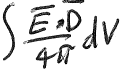 ∫ E̅·D̅ / 4π dV